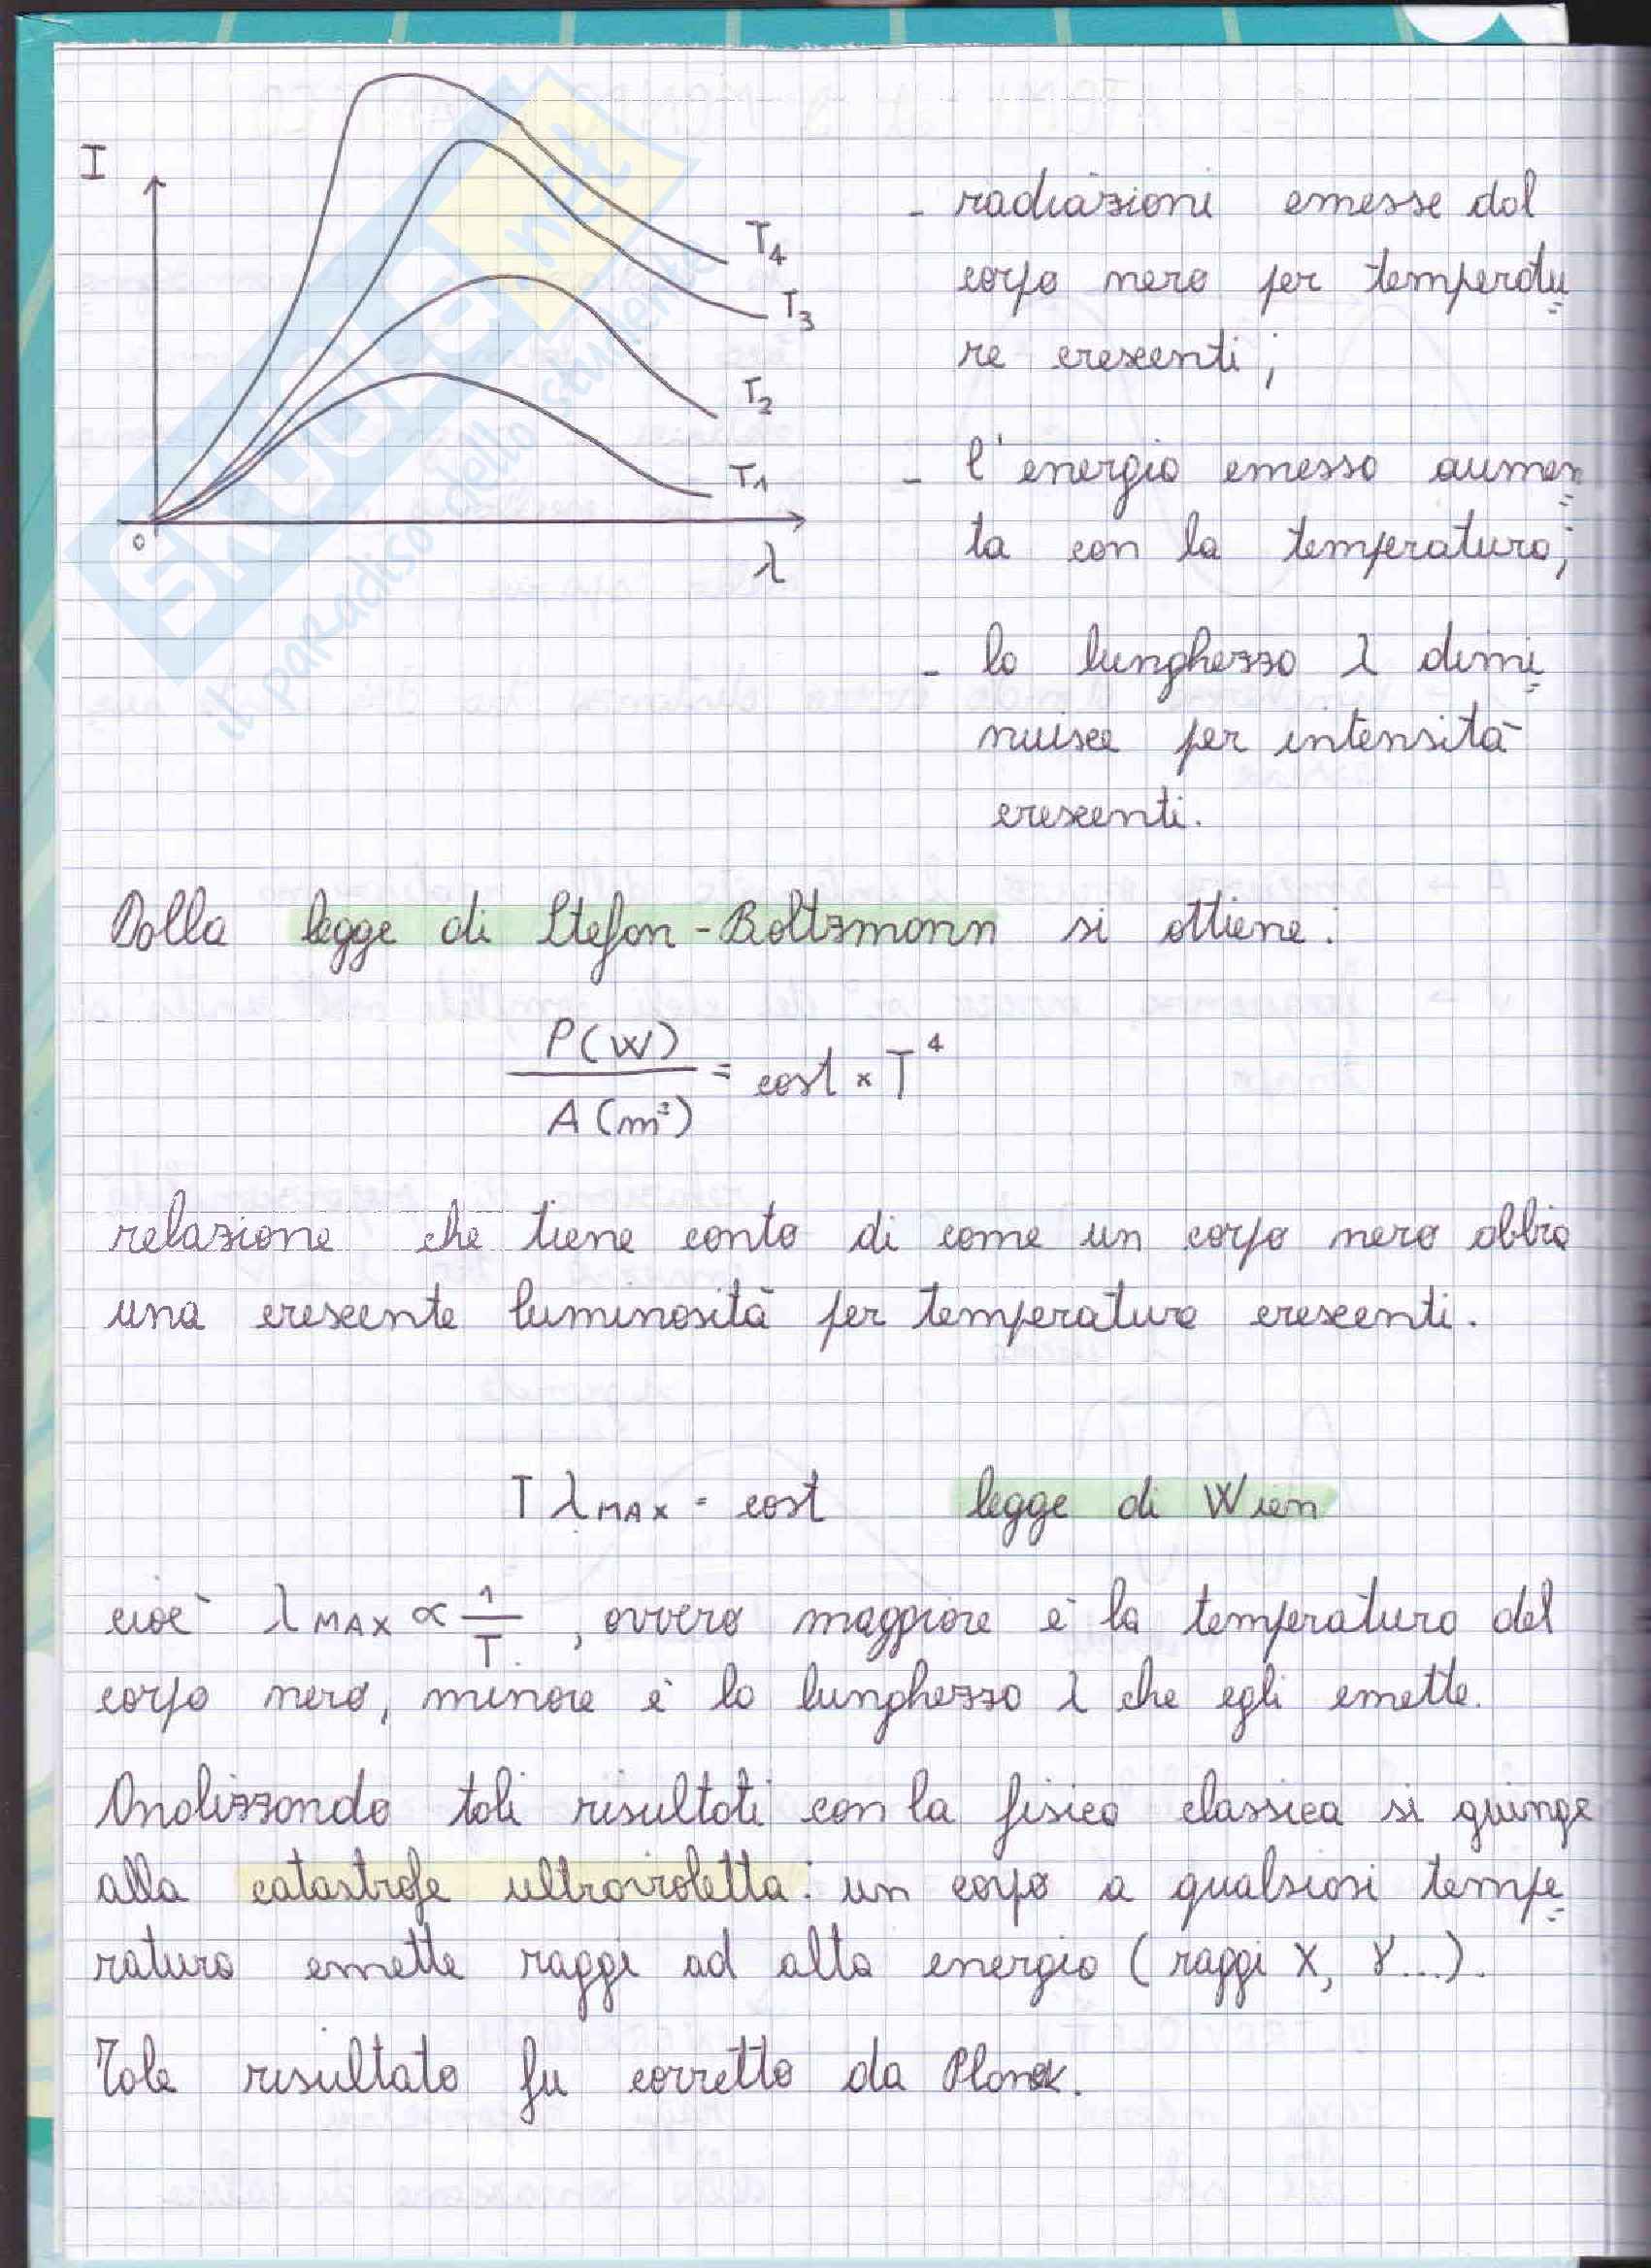 I
T₄
T₃
T₂
T₁
0
λ
- radiazioni emesse dal
corpo nero per temperatu
re crescenti;
- l'energia emessa aumen
ta con la temperatura;
- la lunghezza λ dimi
nuisce per intensità
crescenti.
Dalla legge di Stefan-Boltzmann si ottiene:
P(W)
A(m²)
= cost × T⁴
relazione che tiene conto di come un corpo nero abbia
una crescente luminosità per temperature crescenti.
T λMAX = cost legge di Wien
cioè λMAX ∝ 1/T, ovvero maggiore è la temperatura del
corpo nero, minore è la lunghezza λ che egli emette.
Analizzando tali risultati con la fisica classica si giunge
alla catastrofe ultravioletta: un corpo a qualsiasi tempe
ratura emette raggi ad alta energia (raggi X, γ...).
Tale risultato fu corretto da Planck.
SKUOLA.net
il paradiso dello studente